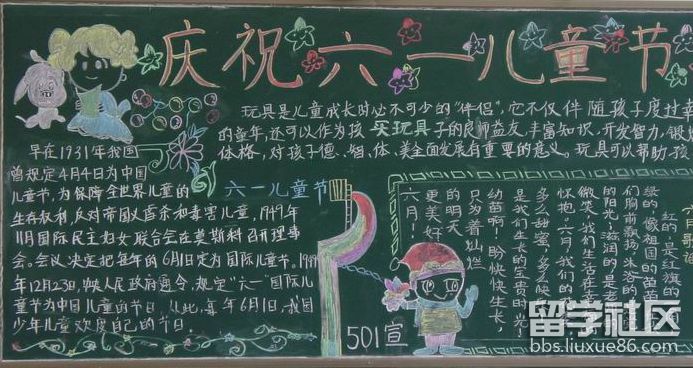 庆祝六一儿童节
玩具是儿童成长时必不可少的"伴侣",它不仅伴随孩子度过幸
的童年,还可以作为孩 买玩具 子的良师益友,丰富知识,开发智力,锻
体格,对孩子德、智、体、美全面发展有重要的意义。玩具可以帮助孩
早在1931年我国
曾规定4月4日为中国
儿童节,为保障全世界儿童的
生存权利,反对帝国
虐杀和毒害儿童,1949年
11月国际民主妇女联合会在莫斯科召开理事
会。会议决定把每年的6月1日定为国际儿童节。19
年12月23日,
人民政府通令,规定"六一"国际儿
童节为中国儿童的节日,从此,每年6月1日,我国
少年儿童欢度自己的节日。
六一儿童节
红的是红旗的
绿的像祖国的苗
们胸前飘扬
的阳光,滋润的是
微笑,我们生活在
怀抱,六月,我们的
多么甜蜜,多么
是我们生长的宝贵时光,
幼苗啊,盼快快生长,
只为着灿烂
的明天
更美好
六月!
501宣
留学社区
bbs.liuxue86.com